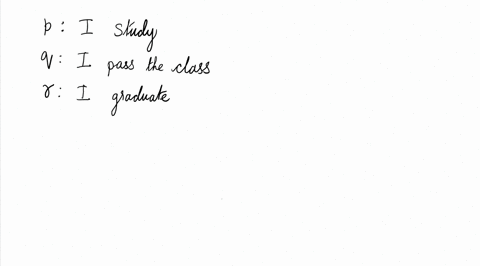 p: I study
q: I pass the class
r: I graduate